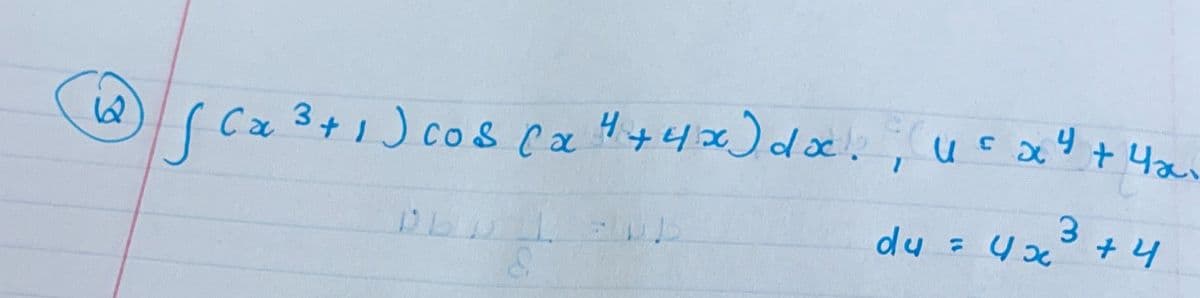 12 ∫ (x³+1) cos (x⁴+4x) dx. ; u = x⁴ + 4x.
du = 4x³ + 4